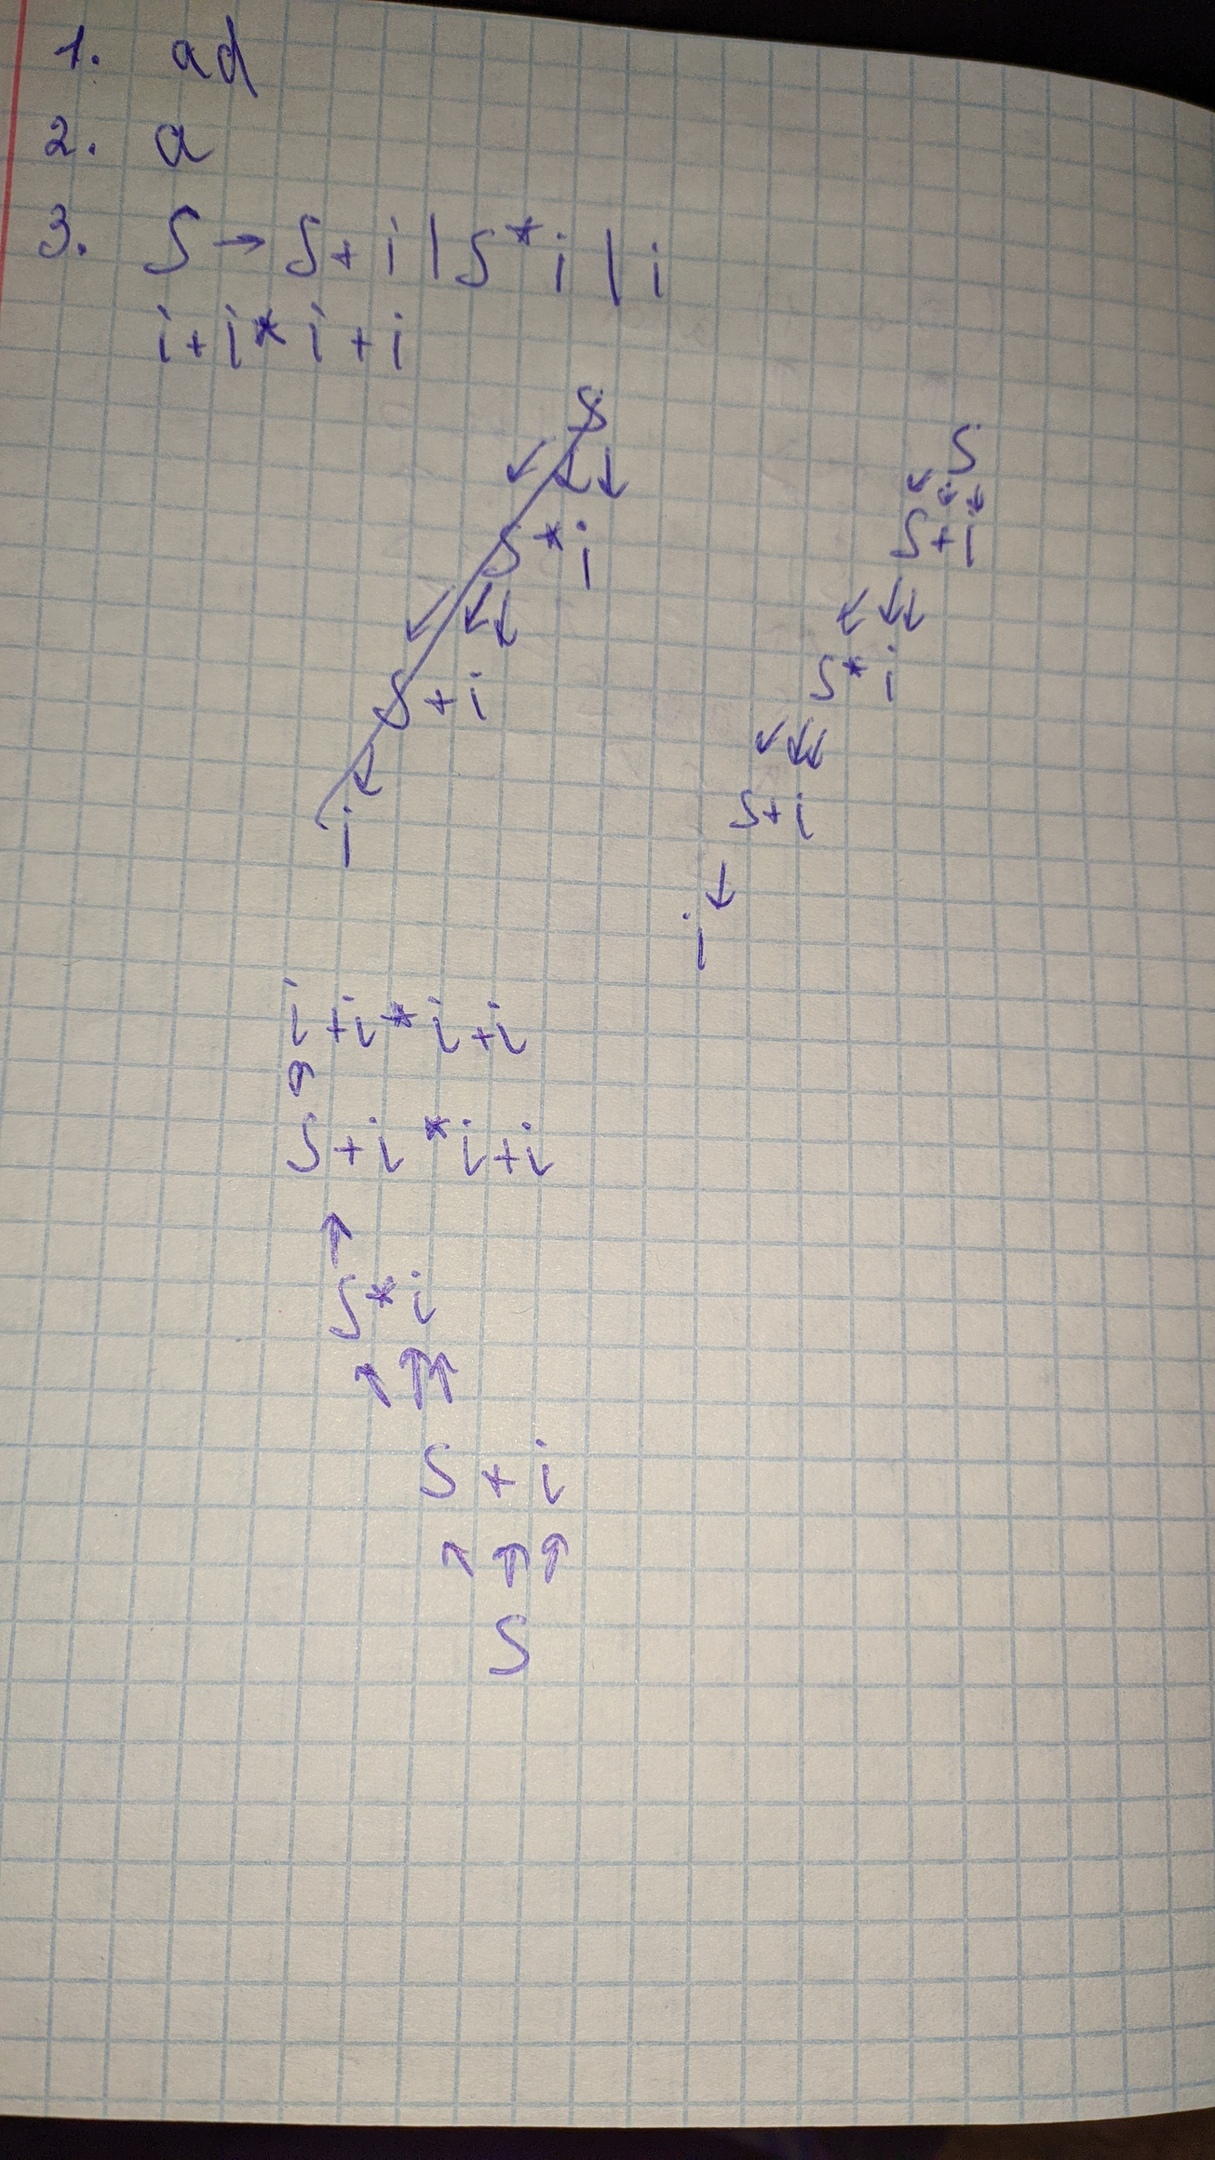 1. ad
2. a
3. S → S + i | S * i | i
i + i * i + i
S
↙ ↓ ↓
S * i
↙ ↓ ↓
S + i
↓
i
S
↙ ↓ ↓
S + i
↙ ↓ ↓
S * i
↙ ↓ ↓
S + i
↓
i
i + i * i + i
↑
S + i * i + i
↑
S * i
↖ ↑ ↑
S + i
↖ ↑ ↑
S